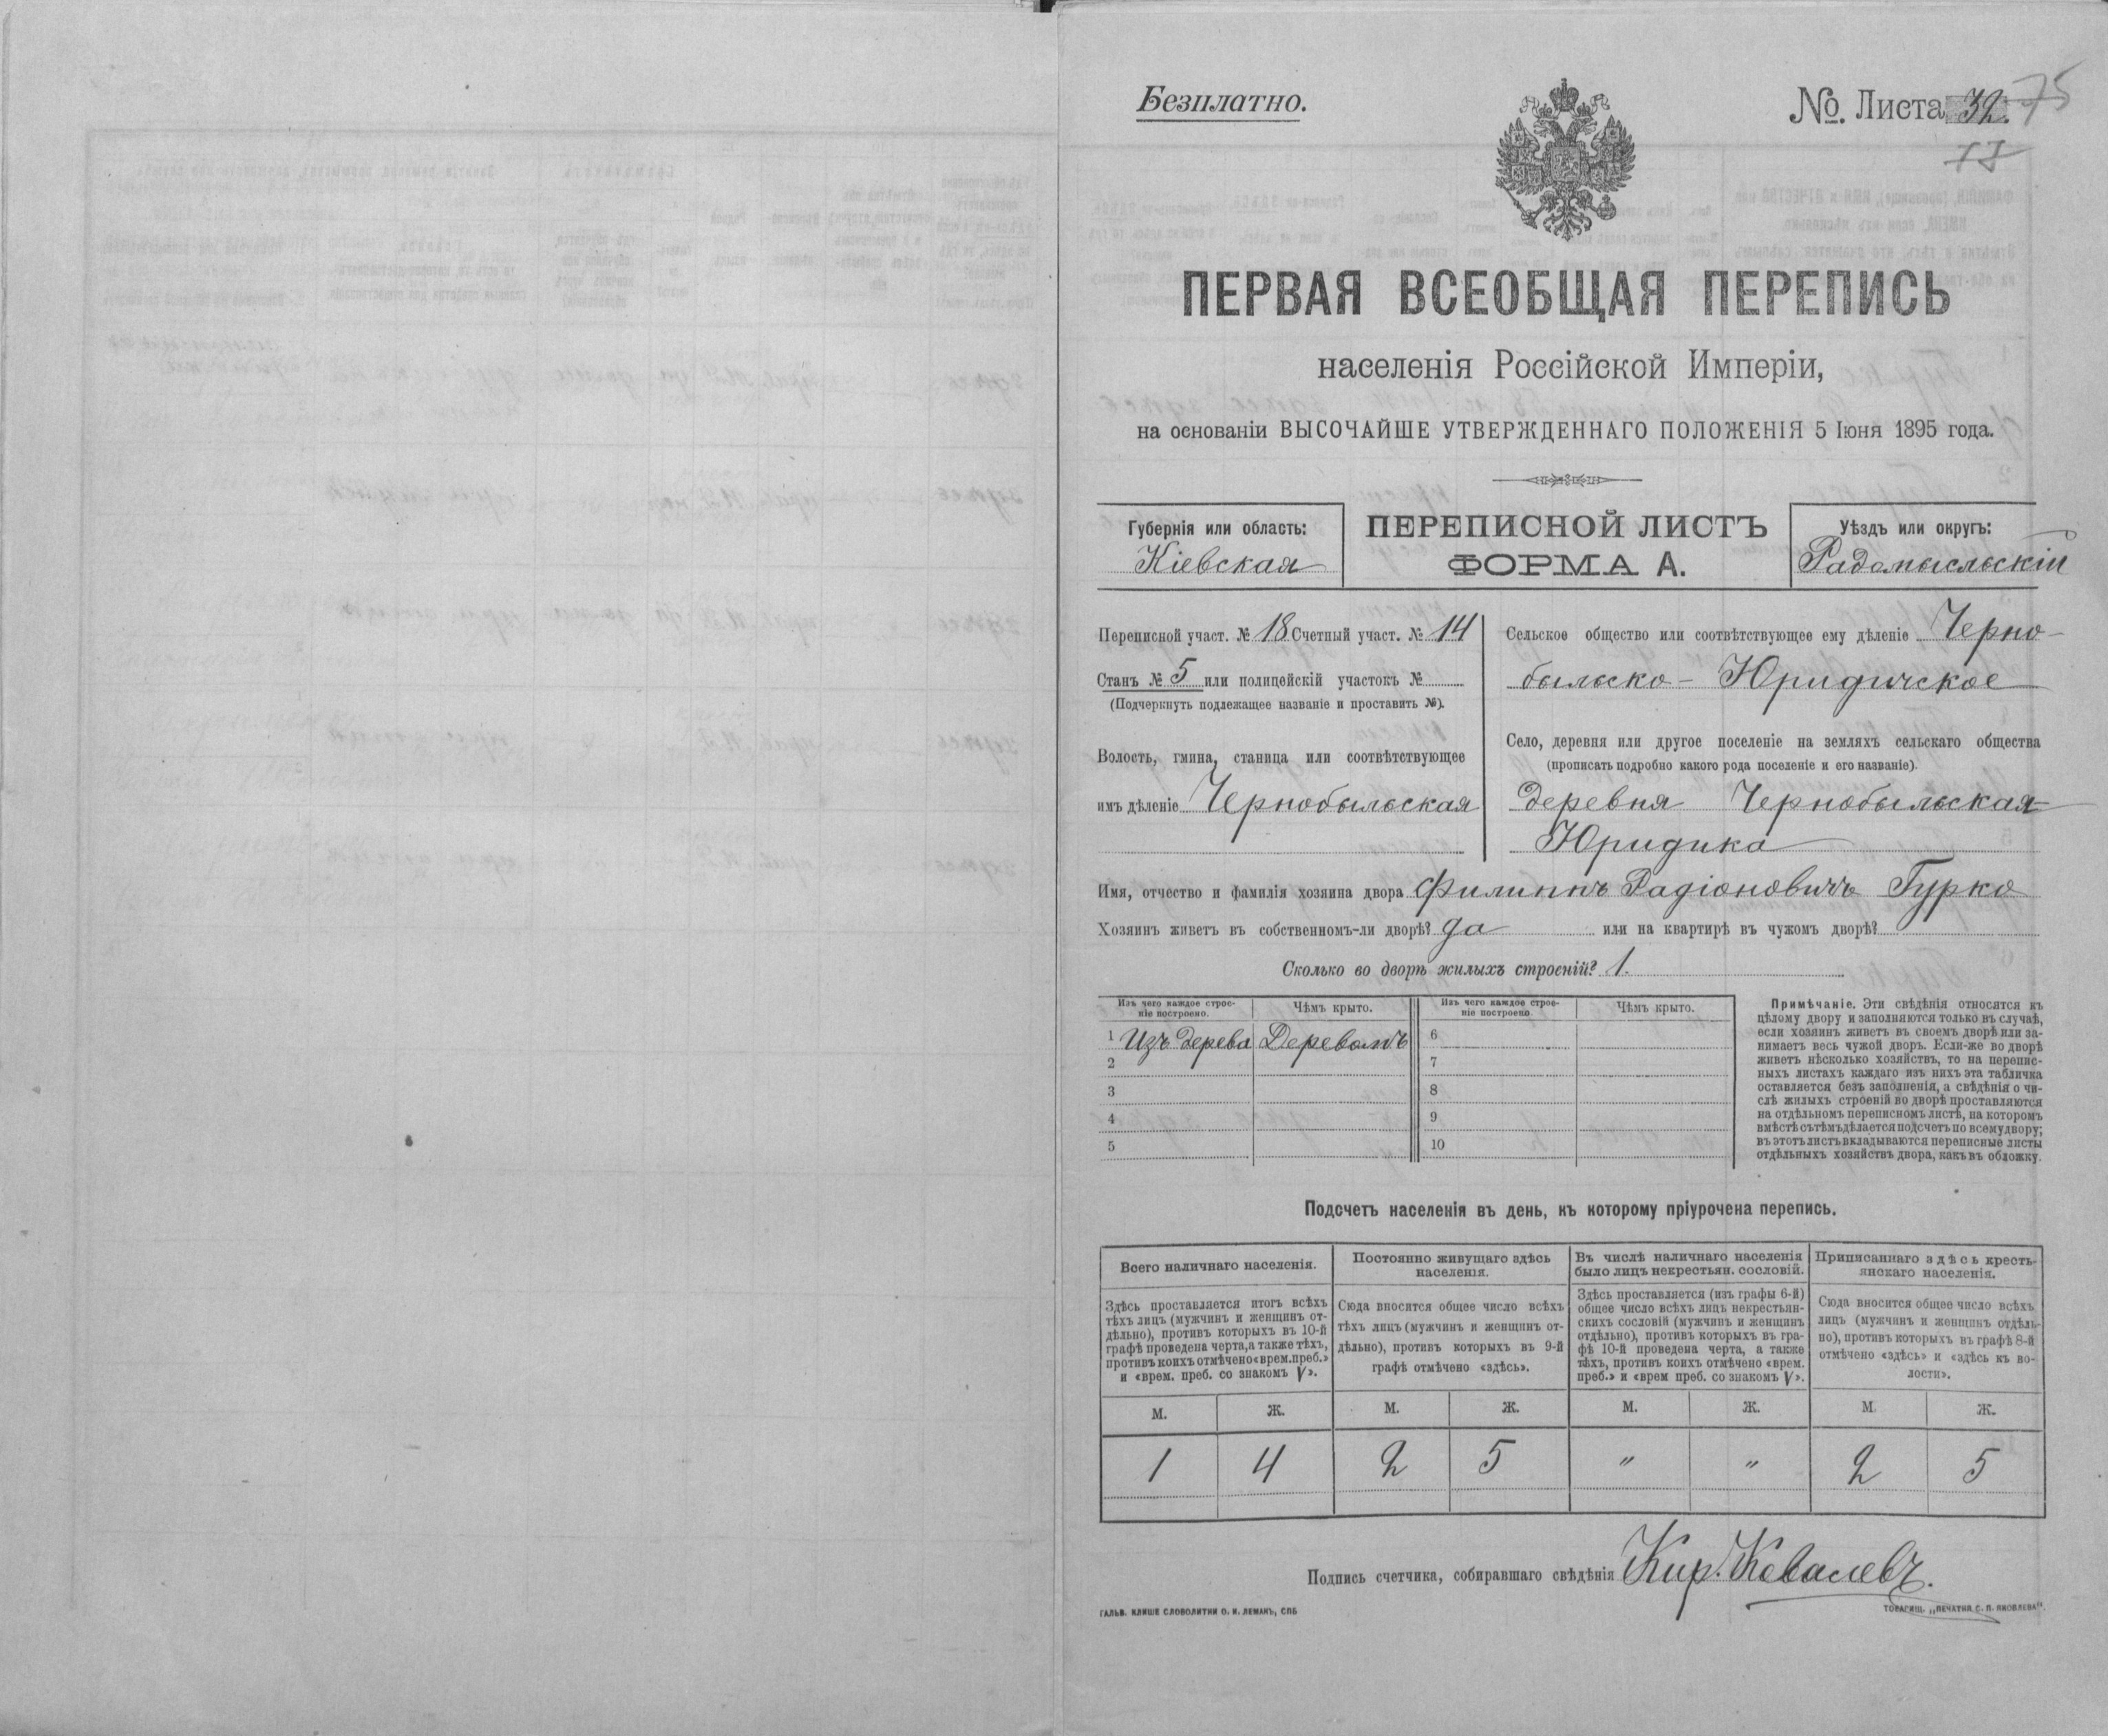 Безплатно.
№. Листа 32. 75
77
ПЕРВАЯ ВСЕОБЩАЯ ПЕРЕПИСЬ
населенія Россійской Имперіи,
на основаніи ВЫСОЧАЙШЕ УТВЕРЖДЕННАГО ПОЛОЖЕНІЯ 5 Іюня 1895 года.
Губернія или область:
Кіевская
ПЕРЕПИСНОЙ ЛИСТЪ
ФОРМА А.
Уѣздъ или округъ:
Радомысльскій
Переписной участ. № 18 Счетный участ. № 14
Станъ № 5 или полицейскій участокъ №
(Подчеркнуть подлежащее названіе и проставить №).
Волость, гмина, станица или соотвѣтствующее
имъ дѣленіе Чернобыльская
Сельское общество или соотвѣтствующее ему дѣленіе Черно-
быльско - Юридичское
Село, деревня или другое поселеніе на земляхъ сельскаго общества
(прописать подробно какого рода поселеніе и его названіе).
деревня Чернобыльская
Юридика
Имя, отчество и фамилія хозяина двора Филиппъ Радіоновичъ Гурко
Хозяинъ живетъ въ собственномъ-ли дворѣ? да или на квартирѣ въ чужомъ дворѣ?
Сколько во дворѣ жилыхъ строеній? 1.
Изъ чего каждое строе-
ніе построено.
Чѣмъ крыто.
Изъ чего каждое строе-
ніе построено
Чѣмъ крыто.
1 Изъ дерева Деревомъ 6
2 7
3 8
4 9
5 10
Примѣчаніе. Эти свѣдѣнія относятся къ
цѣлому двору и заполняются только въ случаѣ,
если хозяинъ живетъ въ своемъ дворѣ или за-
нимаетъ весь чужой дворъ. Если-же во дворѣ
живетъ нѣсколько хозяйствъ, то на перепис-
ныхъ листахъ каждаго изъ нихъ эта табличка
оставляется безъ заполненія, а свѣдѣнія о чи-
слѣ жилыхъ строеній во дворѣ проставляются
на отдѣльномъ переписномъ листѣ, на которомъ
вмѣстѣ съ тѣмъ дѣлается подсчетъ по всему двору;
въ этотъ листъ вкладываются переписные листы
отдѣльныхъ хозяйствъ двора, какъ въ обложку.
Подсчетъ населенія въ день, къ которому пріурочена перепись.
Всего наличнаго населенія.
Постоянно живущаго здѣсь
населенія.
Въ числѣ наличнаго населенія
было лицъ некрестьян. сословій.
Приписаннаго здѣсь кресть-
янскаго населенія.
Здѣсь проставляется итогъ всѣхъ
тѣхъ лицъ (мужчинъ и женщинъ от-
дѣльно), противъ которыхъ въ 10-й
графѣ проведена черта, а также тѣхъ,
противъ коихъ отмѣчено «врем. преб.»
и «врем. преб. со знакомъ V».
Сюда вносится общее число всѣхъ
тѣхъ лицъ (мужчинъ и женщинъ от-
дѣльно), противъ которыхъ въ 9-й
графѣ отмѣчено «здѣсь».
Здѣсь проставляется (изъ графы 6-й)
общее число всѣхъ лицъ некрестьян-
скихъ сословій (мужчинъ и женщинъ
отдѣльно), противъ которыхъ въ гра-
фѣ 10-й проведена черта, а также
тѣхъ, противъ коихъ отмѣчено «врем.
преб.» и «врем преб. со знакомъ V».
Сюда вносится общее число всѣхъ
лицъ (мужчинъ и женщинъ отдѣль-
но), противъ которыхъ въ графѣ 8-й
отмѣчено «здѣсь» и «здѣсь къ во-
лости».
М. Ж. М. Ж. М. Ж. М. Ж.
1 4 2 5 " " 2 5
Подпись счетчика, собиравшаго свѣдѣнія Кир. Ковалевъ.
ГАЛЬВ. КЛИШЕ СЛОВОЛИТНИ О. И. ЛЕМАНЪ, СПБ
ТОВАРИЩ. „ПЕЧАТНЯ С. П. ЯКОВЛЕВА".